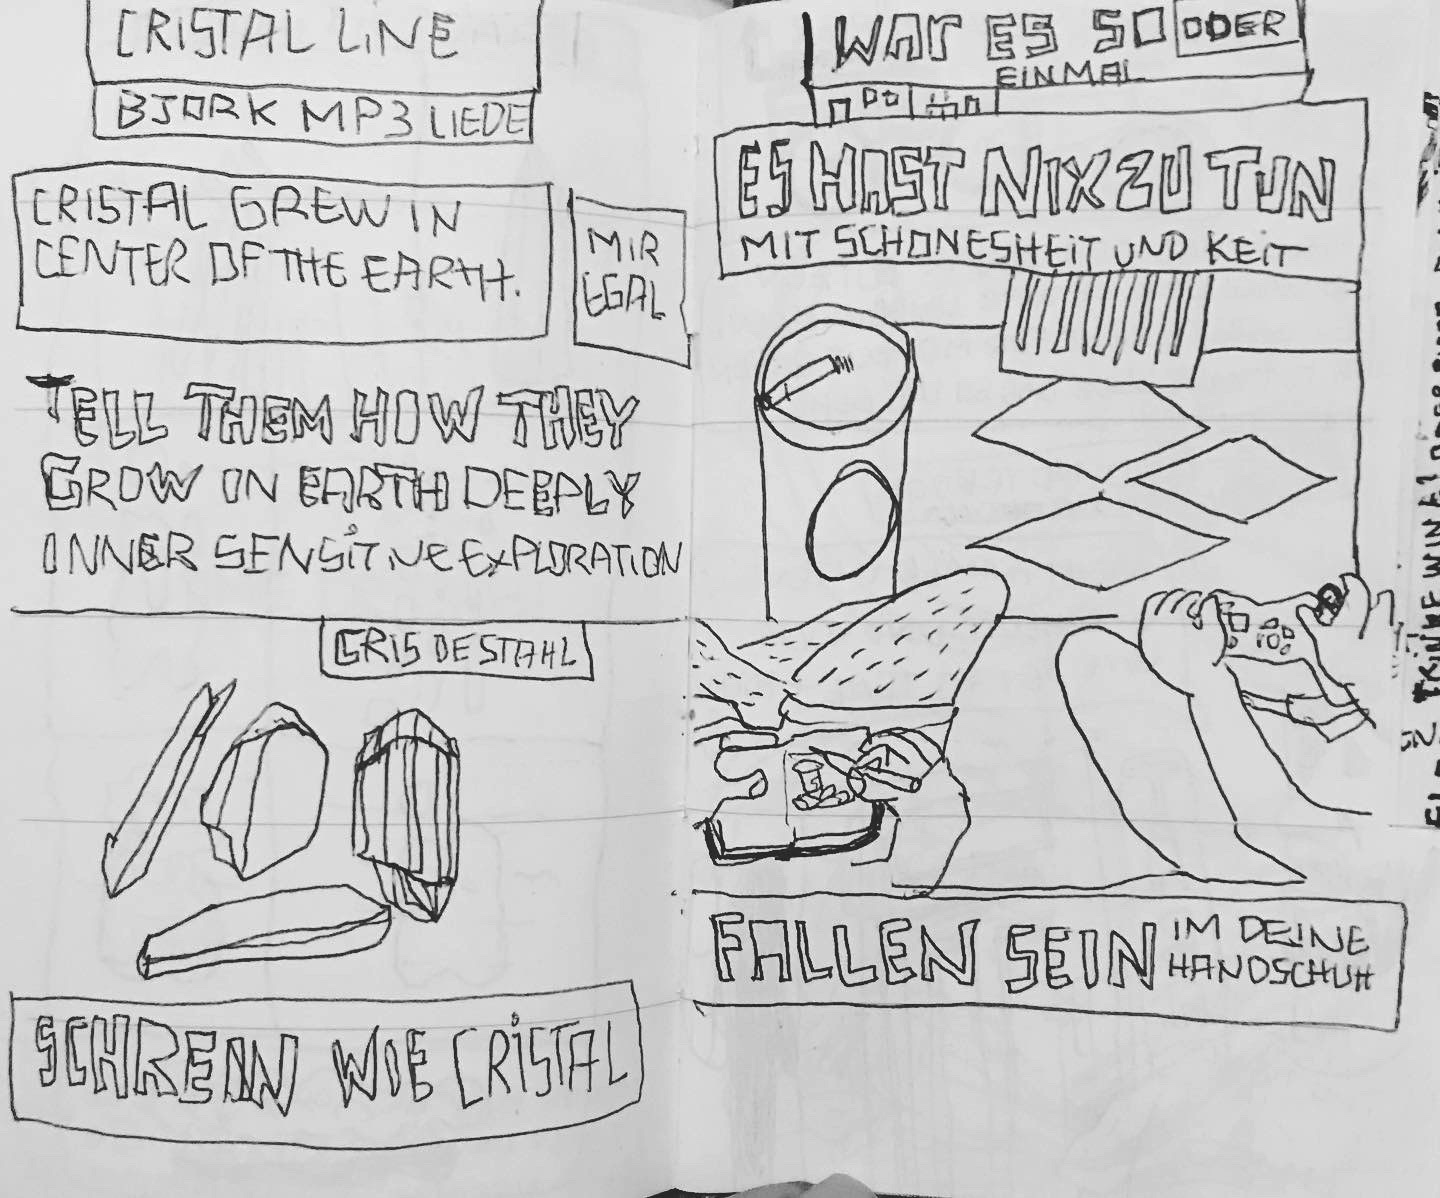 CRISTAL LINE
BJORK MP3 LIEDE
CRISTAL GREW IN
CENTER OF THE EARTH.
MIR
EGAL
TELL THEM HOW THEY
GROW ON EARTH DEEPLY
INNER SENSITIVE EXPLORATION
CRIS DE STAHL
SCHREIN WIE CRISTAL
WAR ES SO ODER
EINMAL
ES HAST NIX ZU TUN
MIT SCHONESHEIT UND KEIT
FALLEN SEIN IM DEINE
HANDSCHUH